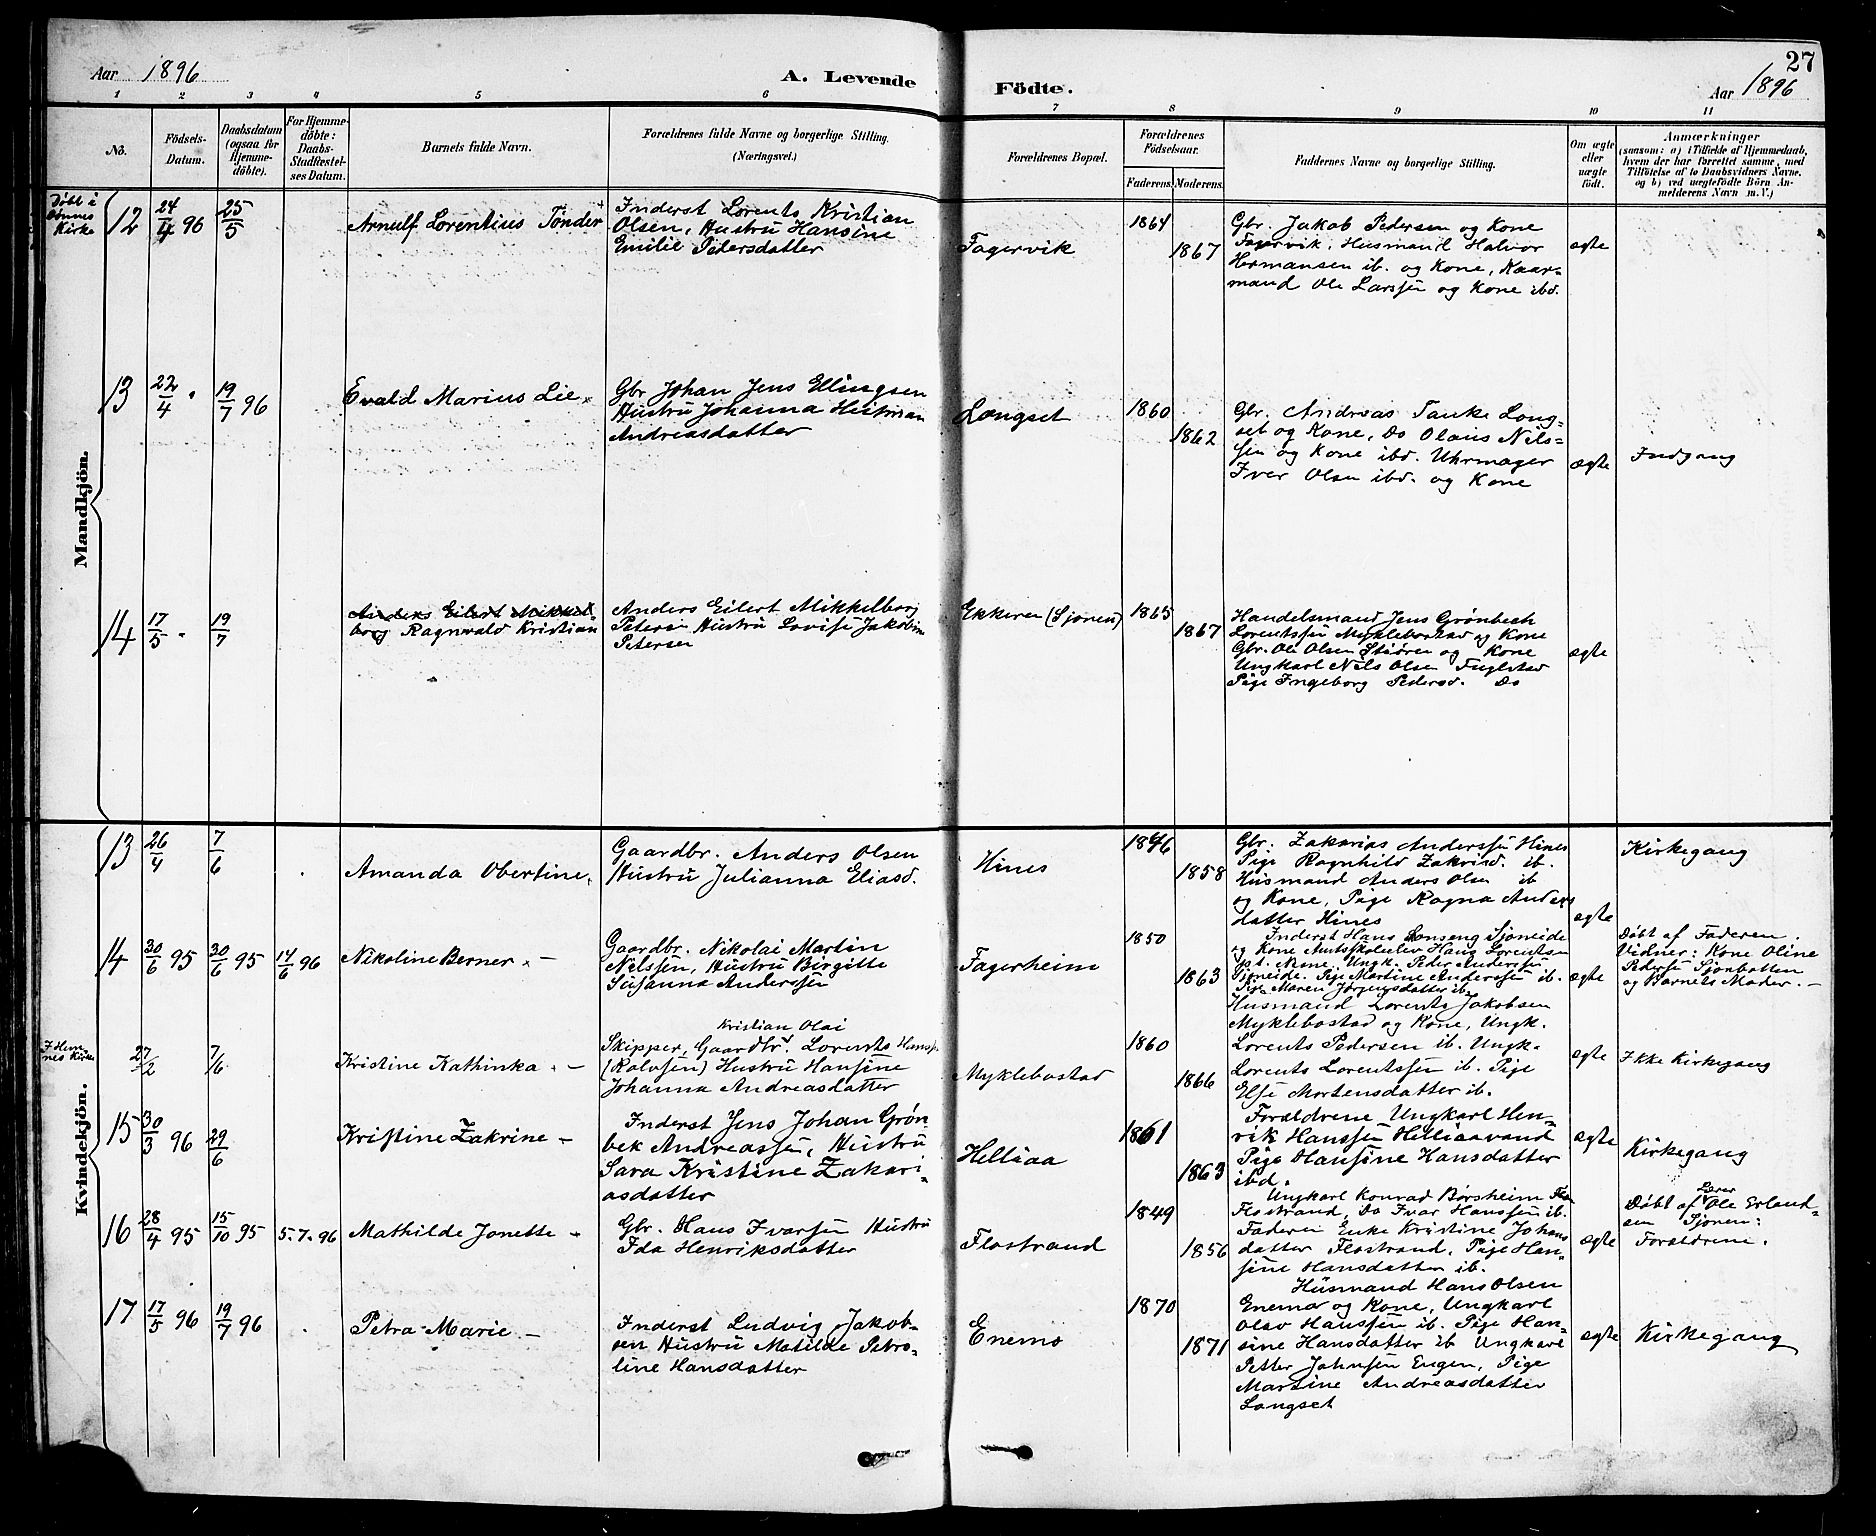 27
Aar 1896
A. Levende
Födte.
Aar 1896
1 2 3 4 5 6 7 8 9 10 11
No.
Födsels-
Datum.
Daabsdatum
(ogsaa for
Hjemme-
döbte).
For Hjemme-
döbte:
Daabs-
Stadfæstel-
ses Datum.
Barnets fulde Navn.
Forældrenes fulde Navne og borgerlige Stilling.
(Næringsvei.)
Forældrenes Bopæl.
Forældrenes
Födselsaar.
Faderens. Moderens.
Faddernes Navne og borgerlige Stilling.
Om ægte
eller
uægte
födt.
Anmærkninger
(saasom: a) i Tilfælde af Hjemmedaab,
hvem der har forrettet samme, med
Tilföielse af to Daabsvidners Navne,
og b) ved uægtefödte Börn An-
melderens Navn m. V.)
Mandkjön.
Døbt i
Dønnes
Kirke
12
24/4 96
25/5
Arnulf Lorentius Tønder
Inderst Lorents Kristian
Olsen, Hustru Hansine
Emilie Pedersdatter
Fagervik
1864
1867
Gbr. Jakob Pedersen og Kone
Fagervik, Husmand Halvor
Hermansen ib. og Kone, Kaar-
mand Ole Larssen og Kone ibd.
ægte
13
22/4 "
19/7 96
Evald Marius Lie
Gbr Johan Jens Ellingsen
Hustru Johanna
Andreasdatter
Længset
1860
1862
Gbr. Andreas Tanke Lang-
set og Kone, Do Olaus Nils-
sen og Kone ibd. Uhrmager
Iver Olsen ibd. og Kone
ægte
Indgang
14
17/5 "
19/7
Anders Eilert Mikkel-
borg Ragnvald Kristian
Anders Eilert Mikkelborg
Petersen Hustru Lovise Jakobine
Petersen
Ekkeren (Sjonen)
1865
1867
Handelsmand Jens Grønbech
Lorentssen Myklebostad og Kone
Gbr. Ole Olsen Stiören og Kone
Ungkarl Nils Olsen Fuglstad
Pige Ingeborg Pedersd. Do
ægte
Kvindekjön.
13
26/4
7/6
Amanda Obertine
Gaardbr. Anders Olsen
Hustru Julianna Eliasd.
Hines
1846
1858
Gbr. Zakarias Anderssen Hines
Pige Ragnhild Zakrisd. ib.
Husmand Anders Olsen ib
og Kone, Pige Ragna Anders
datter Hines
ægte
Kirkegang
14
30/6 95
30/6 95
14/6 96
Nikoline Berner -
Gaardbr. Nikolai Martin
Nilssen, Hustru Birgitte
Susanna Anderssen
Fagerheim
1850
1863
Inderst Hans Lonseng Sjoneide
og Kone Amtsskoleelev Hans Lorentsen
pt. Nesne, Ungk. Peder Anderssen
Sjoneide. Pige Martine Anderssen ib.
Pige Maren Jørgensdatter ib.
ægte
Døbt af Faderen.
Vidner: Kone Oline
Pedersen Sjonbotten
og Barnets Moder. -
I Hem-
nes Kirke
27/2
7/6
Kristine Kathinka -
Kristian Olai
Skipper, Gaardbr. Lorents Hanss.
(Rolvsen) Hustru Hansine
Johanna Andreasdatter
Myklebostad
1860
1866
Husmand Lorents Jakobsen
Myklebostad og Kone, Ungk.
Lorents Pedersen ib. Ungk-
Lorents Lorentssen ib. Pige
Else Mortensdatter ib.
ægte
Ikke Kirkegang
15
30/3 96
29/6
Kristine Zakrine -
Inderst Jens Johan Grøn
bek Andreassen, Hustru
Sara Kristine Zakari-
asdatter
Helliaa
1861
1863
Forældrene, Ungkarl Hen-
rik Hanssen Helliaavand
Pige Hansine Hansdatter
ibd.
ægte
Kirkegang
16
28/4 95
15/10 95
5.7.96
Mathilde Jonette -
Gbr. Hans Ivarsen Hustru
Ida Henriksdatter
Flostrand
1849
1856
Ungkarl Konrad Børsheim
Flostrand, Do Ivar Hanssen ib.
Faderen Enke Kristine Johans
datter Flostrand, Pige Han-
sine Hansdatter ib.
ægte
Døbt af Lærer Ole Erland-
sen Sjonen:
Forældrene.
17
17/5 96
19/7 96
Petra Marie -
Inderst Ludvig Jakob-
sen Hustru Matilde Petro-
line Hansdatter
Enemo
1870
1871
Husmand Hans Olsen
Enemo og Kone, Ungkarl
Olav Hanssen ib. Pige Han-
sine Hansdatter ib Ungkarl
Petter Johnsen Engen, Pige
Martine Andreasdatter
Langset
ægte
Kirkegang